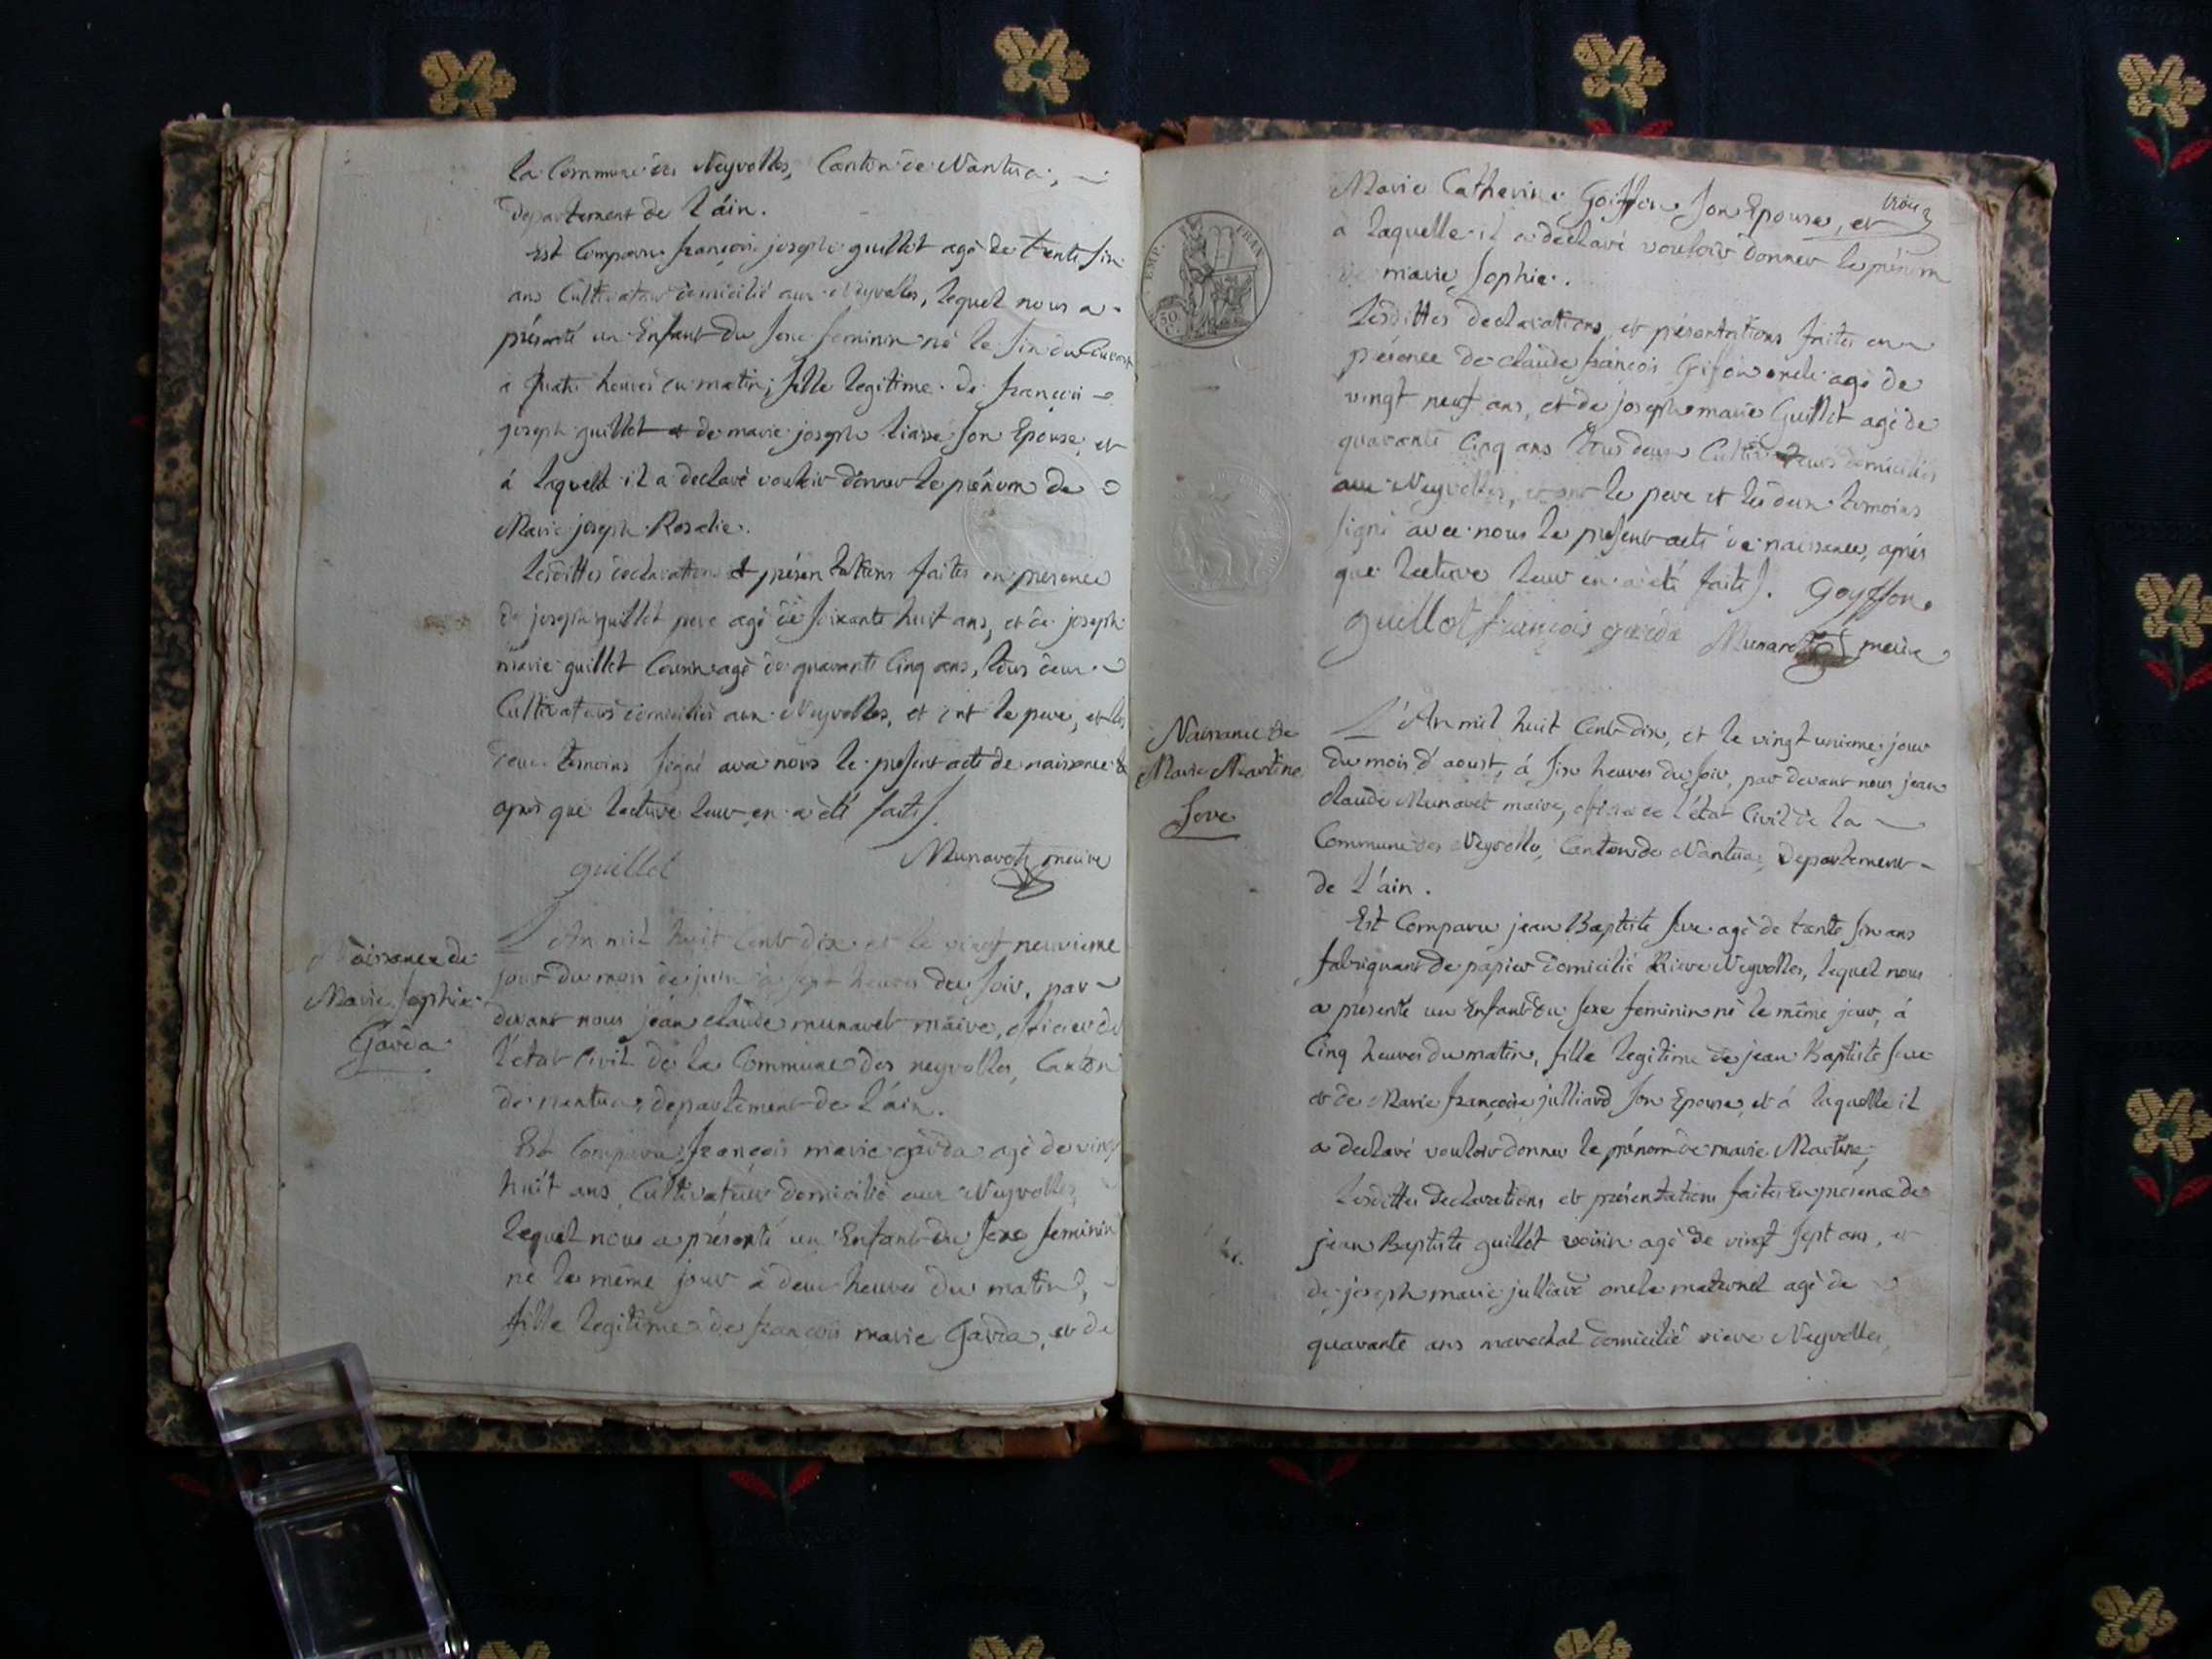 la Commune des Neyrolles, Canton de Nantua,
departement de l'áin.
Est Comparu françois joseph guillot agé de trente six
ans Cultivateur domicilié aux Neyrolles, lequel nous a
présenté un Enfant du sexe feminin né le six du Courant
à quatre heures du matin, fille legitime de françois
joseph guillot et de marie joseph liasse son Epouse, et
á laquelle il a declaré vouloir donner le prénom de
Marie joseph Rosalie.
lesdittes declarations et présentations faites en presence
de joseph guillot pere agé de soixante huit ans, et de joseph
marie guillot Cousin agé de quarante Cinq ans, tous deux
Cultivateurs domiciliés aux Neyrolles, et ont le pere, et les
deux temoins signé avec nous le present acte de naissance
après que lecture leur en a été faite.
guillot Munaret maire
Naissance de
Marie Sophie
Garda
L'An mil huit Cent dix et le vingt neuvieme
jour du mois de juin à sept heures du soir, par
devant nous jéan claude munaret maire, officier de
l'état Civil de la Commune des neyrolles, Canton
de nantua, departement de l'áin.
Est Comparu françois marie garda agé de vingt
huit ans, Cultivateur domicilié aux Neyrolles,
lequel nous a présenté un Enfant du sexe feminin
né le même jour à deux heures du matin,
fille legitime de françois marie Garda, et de
trois
Marie Catherine Goiffon son Epouse, et
à laquelle il a déclaré vouloir donner le prénom
de marie Sophie.
Lesdittes declarations et présentations faites en
présence de claude françois Gifon oncle agé de
vingt neuf ans, et de joseph marie Guillot agé de
quarante Cinq ans tous deux Cultivateurs domiciliés
aux Neyrolles, et ont le pere et les deux temoins
signé avec nous le present acte de naissance, après
que lecture leur en a été faite. Goyffon
guillot françois garda Munaret maire
Naissance de
Marie Martine
Seve
L'An mil huit Cent dix, et le vingt unieme jour
du mois d'aoust, á six heures du soir, par devant nous jean
claude Munaret maire, officier de l'état Civil de la
Commune des Neyrolles, Canton de Nantua, Departement
de l'áin.
Est Comparu jean Baptiste seve agé de trente six ans
fabriquant de papier domicilié Riere Neyrolles, lequel nous
a présenté un Enfant du sexe feminin né le même jour, á
Cinq heures du matin, fille legitime de jean Baptiste seve
et de Marie françoise julliard son Epouse, et á laquelle il
a declaré vouloir donner le prénom de marie Martine,
Lesdittes declarations et présentations faites En présence de
jean Baptiste guillot voisin agé de vingt sept ans, et
de joseph marie julliard oncle maternel agé de
quarante ans marechal domicilié riere Neyrolles,